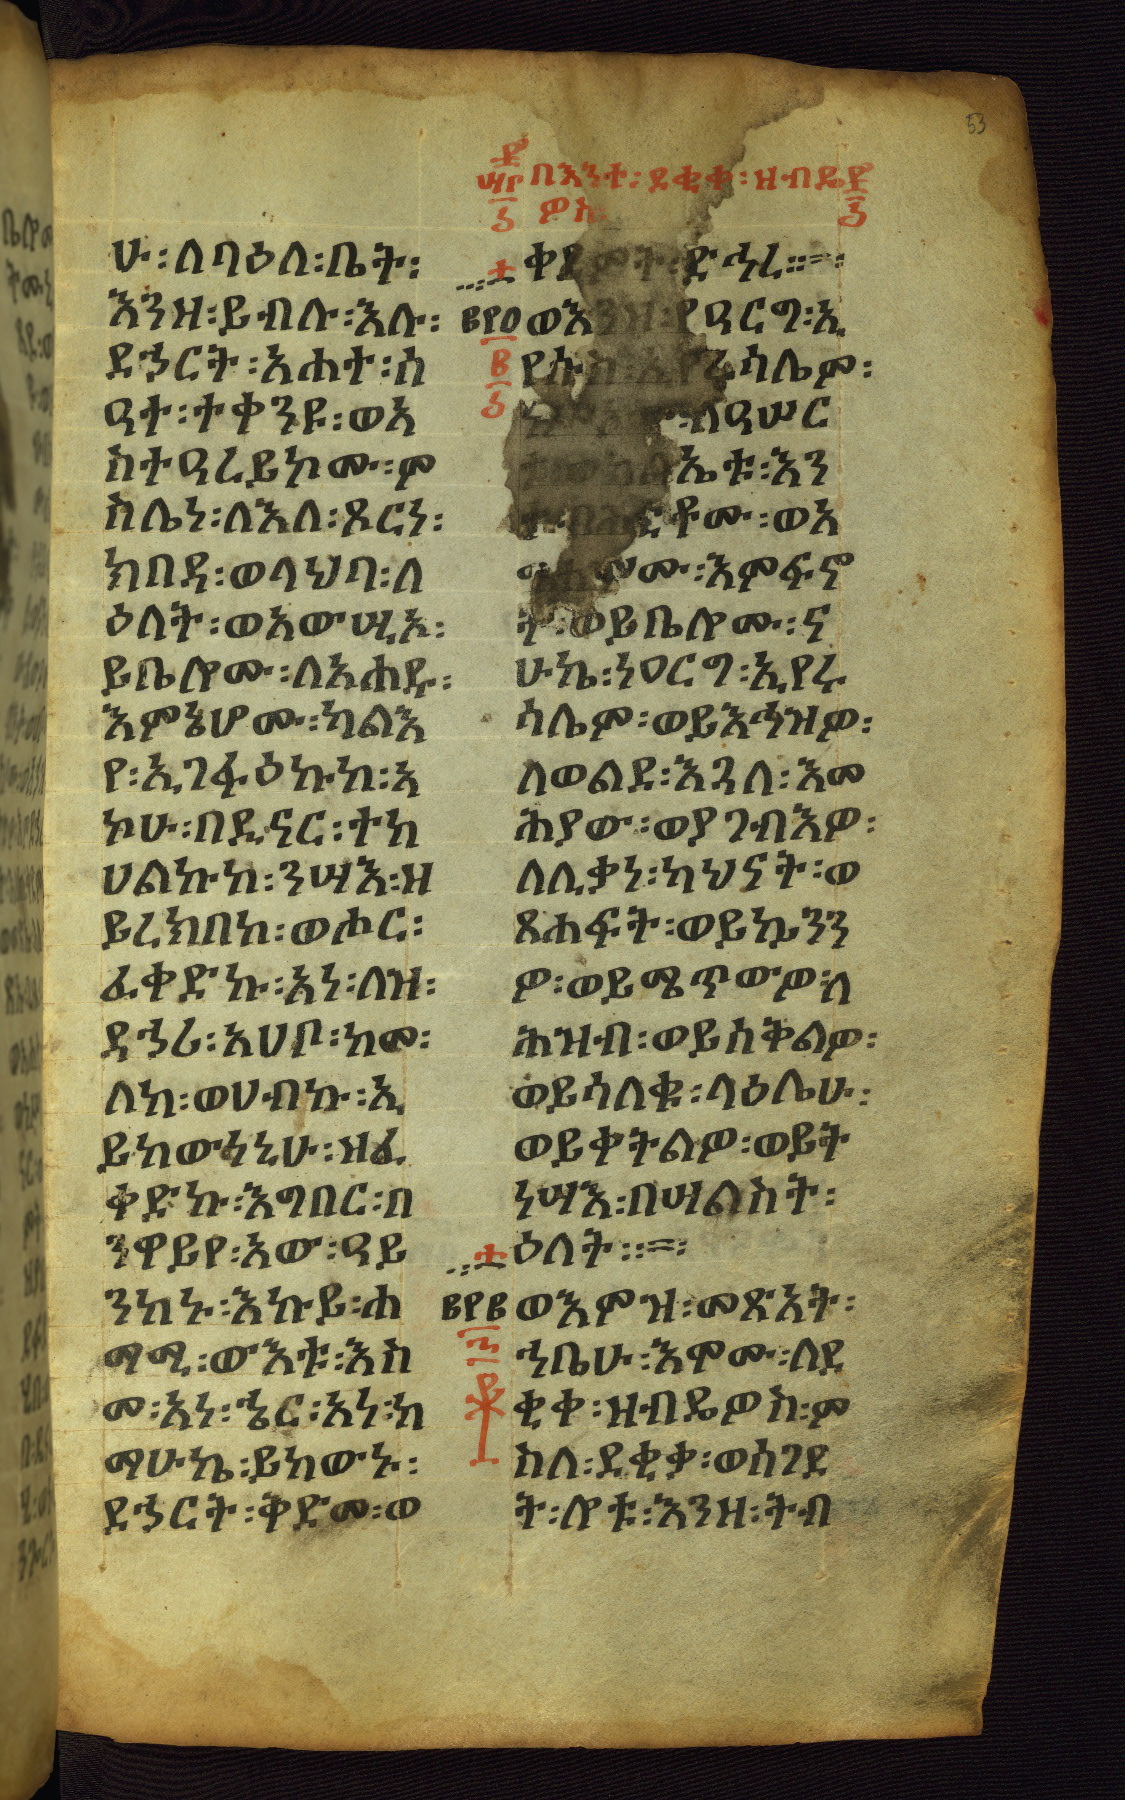 53
በእንተ፡ደቂቀ፡ዘብዴ
ዎስ
ሁ፡ለባዕለ፡ቤት፡
እንዘ፡ይብሉ፡እሉ፡
ደኃርት፡አሐተ፡ሰ
ዓተ፡ተቀንዩ፡ወአ
ስተዓረይኮሙ፡ም
ስሌነ፡ለእለ፡ጾርነ፡
ክበዳ፡ወላህባ፡ለ
ዕለት፡ወአውሢኦ፡
ይቤሎሙ፡ለአሐዱ፡
እምኔሆሙ፡ካልእ
የ፡ኢገፋዕኩከ፡አ
ኮሁ፡በዲናር፡ተከ
ሀልኩከ፡ንሣእ፡ዘ
ይረክበከ፡ወሖር፡
ፈቀድኩ፡አነ፡ለዝ፡
ዳኃሪ፡አሀቦ፡ከመ፡
ለከ፡ወሀብኩ፡ኢ
ይከውነኒሁ፡ዘፈ
ቀድኩ፡እግበር፡በ
ንዋይየ፡አው፡ዓይ
ንከኑ፡እኩይ፡ሐ
ማሚ፡ውእቱ፡እስ
መ፡አነ፡ኄር፡አነ፡ከ
ማሁኬ፡ይከውኑ፡
ደኃርት፡ቅድመ፡ወ
ቀደምት፡ድኅረ�።
ወእንዘ፡የዓርግ፡ኢ
የሱስ፡ኢየሩሳሌም፡
ለዓሠር
ኤቱ፡እን
ቶሙ፡ወአ
ሙ፡እምፍኖ
ት፡ወይቤሎሙ፡ና
ሁኬ፡ነዐርግ፡ኢየሩ
ሳሌም፡ወይእኅዝዎ፡
ለወልደ፡እጓለ፡እመ
ሕያው፡ወያገብእዎ፡
ለሊቃነ፡ካህናት፡ወ
ጸሐፍት፡ወይኴንን
ዎ፡ወይሜጥውዎ፡ለ
ሕዝብ፡ወይሰቅልዎ፡
ወይሳለቁ፡ላዕሌሁ፡
ወይቀትልዎ፡ወይት
ነሣእ፡በሣልስት፡
ዕለት፡።
ወእምዝ፡መጽአት፡
ኀቤሁ፡እሞሙ፡ለደ
ቂቀ፡ዘብዴዎስ፡ም
ስለ፡ደቂቃ፡ወሰገደ
ት፡ሎቱ፡እንዘ፡ትብ